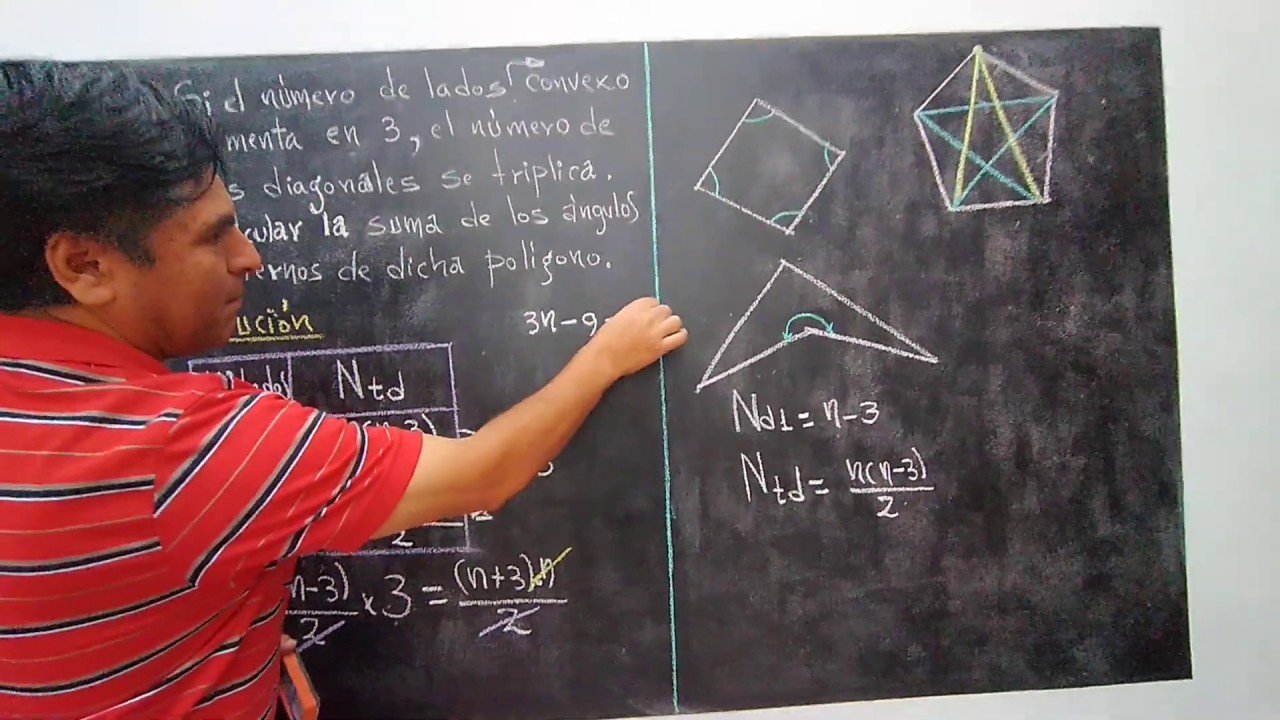 Si el número de lados convexo
menta en 3, el número de
s diagonales se triplica.
cular la suma de los ángulos
ernos de dicha poligono.
ución
3n-9
Ntd
2
n-3)/2 x 3 = (n+3).n/2
Nd1 = n-3
Ntd = n(n-3)/2